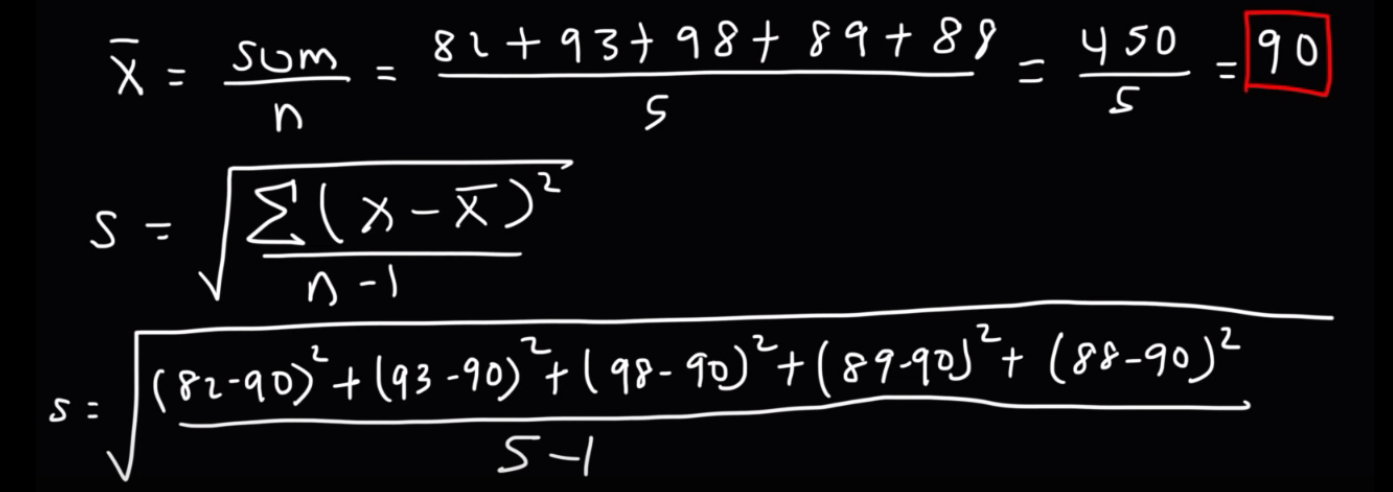 x̄ = sum/n = (82 + 93 + 98 + 89 + 88)/5 = 450/5 = 90
s = √(Σ(x - x̄)²/(n - 1))
s = √(((82-90)² + (93-90)² + (98-90)² + (89-90)² + (88-90)²)/(5-1))